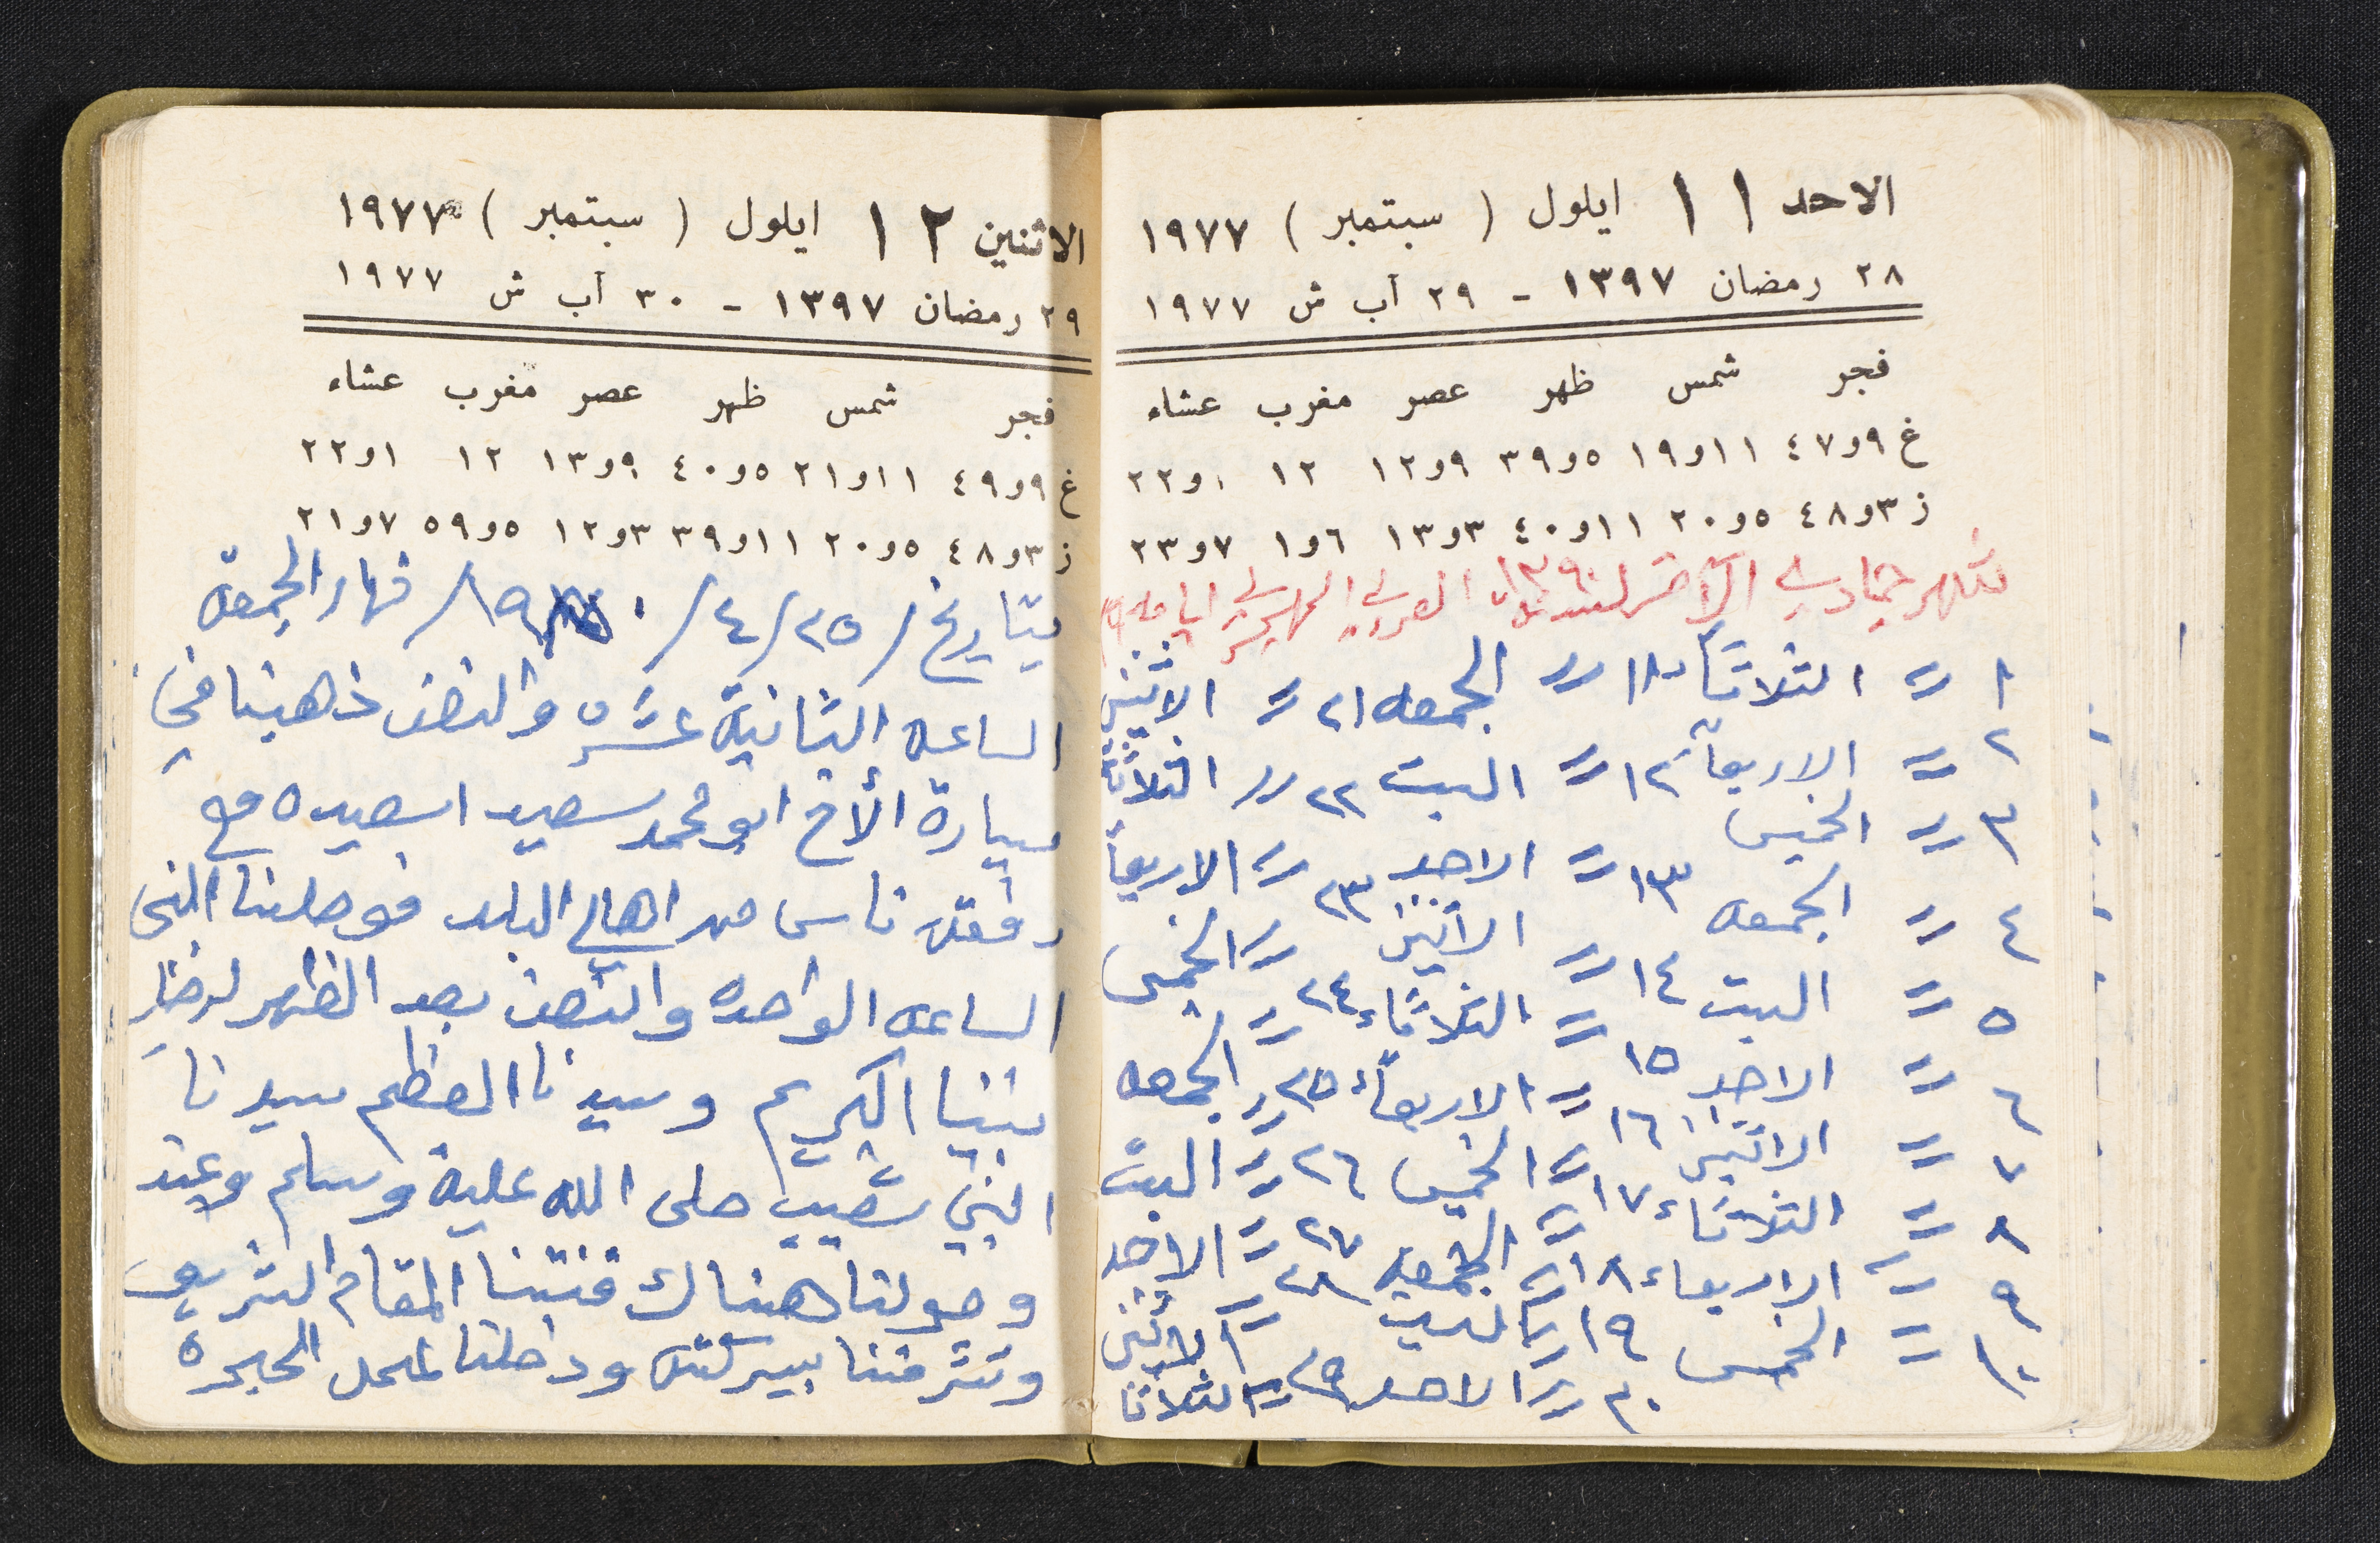 الاحد ١١ ايلول ( سبتمبر ) ١٩٧٧
٢٨ رمضان ١٣٩٧ - ٢٩ آب ش ١٩٧٧
فجر شمس ظهر عصر مغرب عشاء
غ ٩و٤٧ ١١و١٩ ٥و٣٩ ٩و١٢ ١٢ ١و٢٢
ز ٣و٤٨ ٥و٢٠ ١١و٤٠ ٣و١٣ ٦و١ ٧و٢٣
جمادي الآخر لسنة العربي الهجري ايامه
١ = الثلاثاء ١١ = الجمعه ٢١ = الاثنين
٢ = الاربعاء ١٢ = السبت ٢٢ = الثلاثاء
٣ = الخميس ١٣ = الاحد ٢٣ = الاربعاء
٤ = الجمعه ١٤ = الاثنين ٢٤ = الخميس
٥ = السبت ١٥ = الثلاثاء ٢٥ = الجمعه
٦ = الاحد ١٦ = الاربعاء ٢٦ = السبت
٧ = الاثنين ١٧ = الخميس ٢٧ = الاحد
٨ = الثلاثاء ١٨ = الجمعه ٢٨ = الاثنين
٩ = الاربعاء ١٩ = السبت ٢٩ = الثلاثا
١٠ = الخميس ٢٠ = الاحد
الاثنين ١٢ ايلول ( سبتمبر ) ١٩٧٧
٢٩ رمضان ١٣٩٧ - ٣٠ آب ش ١٩٧٧
فجر شمس ظهر عصر مغرب عشاء
غ ٩و٤٩ ١١و٢١ ٥و٤٠ ٩و١٣ ١٢ ١و٢٢
ز ٣و٤٨ ٥و٢٠ ١١و٣٩ ٣و١٢ ٥و٥٩ ٧و٢١
بتاريخ /٢٥/٤/ نهار الجمعة
الساعه الثانية عشره والنصف ذهبنا في
سيارة الأخ ابو محمد سعيد اسعيده مع
رفقة ناس من اهالي البلد فوصلنا الى
الساعه الواحده والنصف بعد الظهر
نبينا الكريم وسيدنا العظم سيدنا
النبي شعيب صلى الله عليه وسلم وعند
وصولنا هناك فتنا المقام الشريف
وتشرفنا ببركته ودخلنا لمحل الحجرة